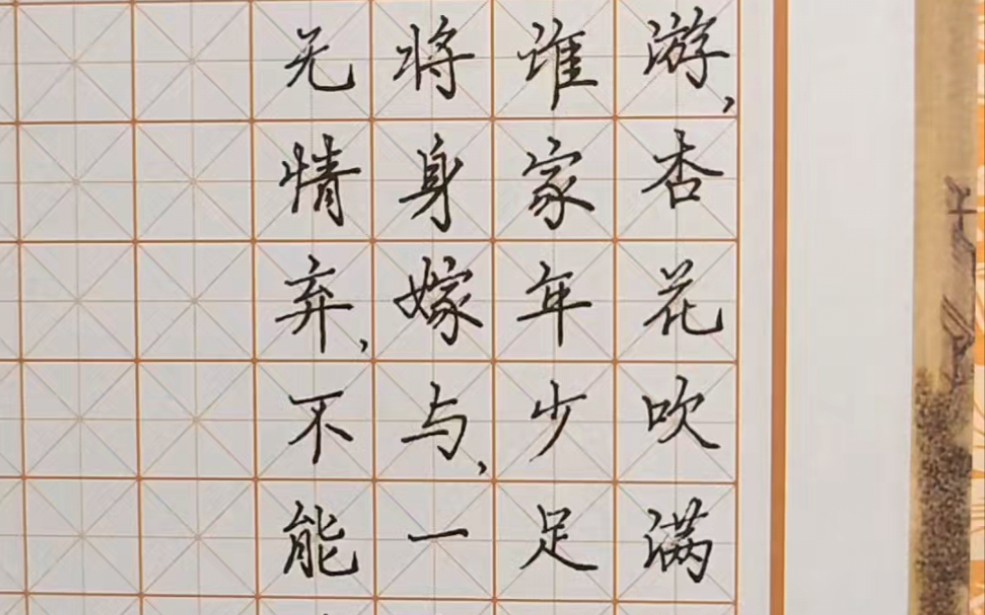 游，杏花吹满
谁家年少足
将身嫁与，一
无情弃，不能